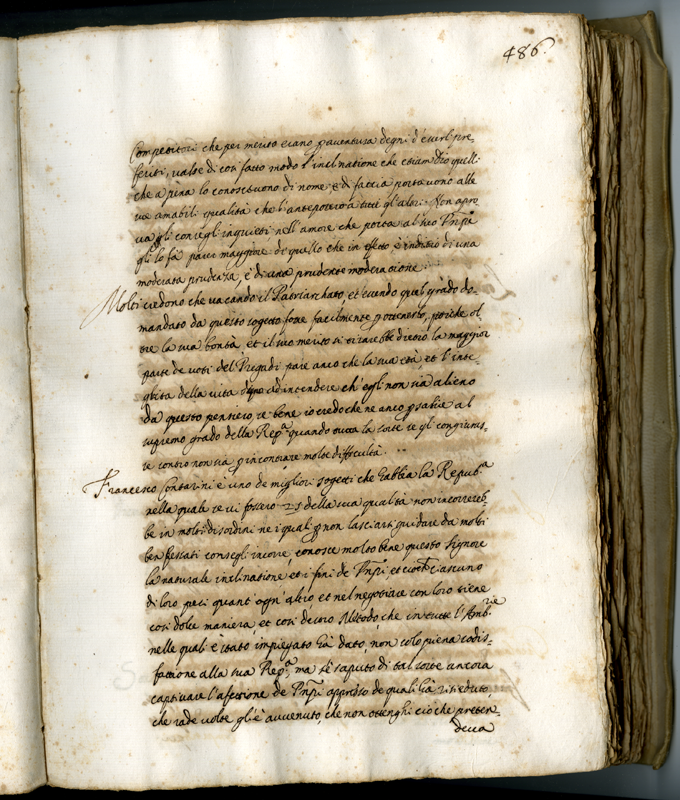 486.
Competitori che per merito erano p auentura degni d'esserli pre,
feriti, ualse di cosi fatto modo l'inclinatione che etiam Dio quelli
che a pena lo conosceuono di nome e di faccia portauono alle
sue amabili qualità che l'anteposero a tutti gl'altri. Non apro
ua gli consegli inquieti nell'amore che porta al suo Pnpe
gli lo fà parer maggiore di quello che in effetto è inditio di una
moderata prudenza, e di una prudente moderacione.
Molti credono che uacando il Patriarchato, et essendo quel grado do-
mandato da questo sogetto fosse facilmente p ottenerlo, perche ol,
tre la sua bontà et il suo merito si tirarebbe dietro la maggior
parte de uoti del Pregadi pare anco che la sua età, et l'inte-
grità della uita ch'egli non sia alieno
da questo pensiero, se bene io credo che ne anco p salire al
supremo grado della Repa quando tutta la sorte se gli congiuras,
se contro non sia p incontrare molte difficultà.
Francesco Contarini è uno de migliori sogetti che habbia la Republa
nella quale se ui fossero 25 della sua qualità non incorrereb,
be in molti disordini ne i quali p non lasciarsi guidare da molti
ben pesati consegli incorre, conosce molto bene questo signore
la naturale inclinatione et i fini de Pnpi, et ciascuno
di loro, pari quant'ogn'altro et nel negotiare con loro tiene
cosi dolce maniera et cosi decoro Metodo, che in tutte l'Ambrie
nelle quali è stato impiegato hà dato, non solo piena sodis-
fattione alla sua Repa ma s'è saputo di tal sorte ancora
captiuare l'afettione de Pnpi appresso de quali hà risieduto,
che rade uolte gl'è auuenuto che non ottenghi ciò che preten-
deua